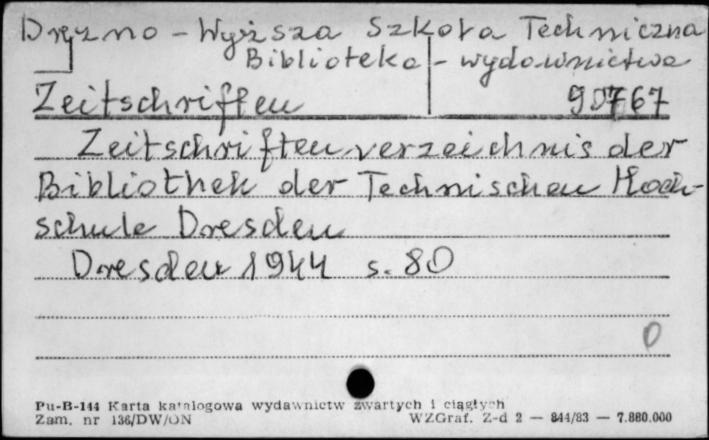 Drezno - Wyższa Szkoła Techniczna
Biblioteka - wydawnictwa
Zeitschriften 90767
Zeitschriftenverzeichnis der
Bibliothek der Technischen Hoch-
schule Dresden
Dresden 1944 s. 80
0
Pu-B-144 Karta katalogowa wydawnictw zwartych i ciągłych
Zam. nr 136/DW/ON WZGraf. Z-d 2 — 844/83 — 7.880.000